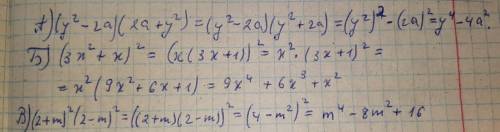 А) (y² - 2a)(2a + y²) = (y² - 2a)(y² + 2a) = (y²)² - (2a)² = y⁴ - 4a².
Б) (3x² + x)² = (x(3x + 1))² = x² · (3x + 1)² =
= x²(9x² + 6x + 1) = 9x⁴ + 6x³ + x²
В) (2+m)²(2-m)² = ((2+m)(2-m))² = (4 - m²)² = m⁴ - 8m² + 16